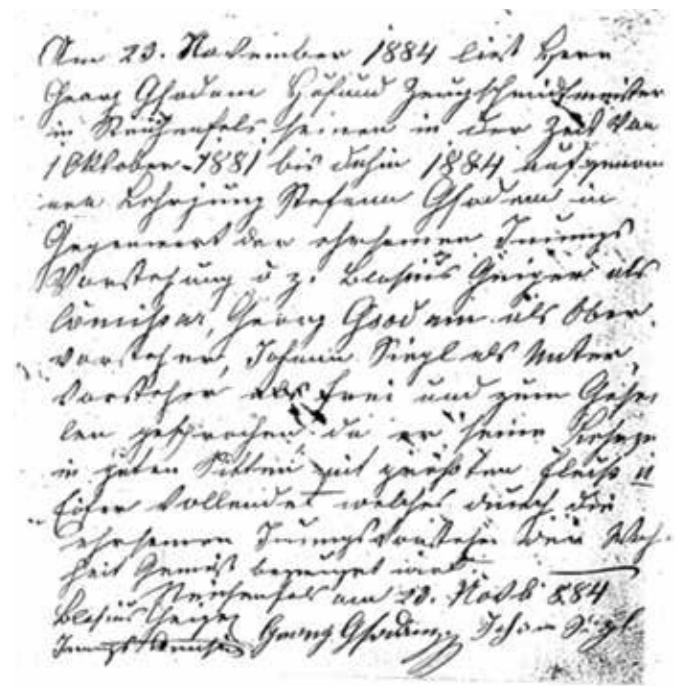 Am 23. November 1884 ließ Herr
Georg Gsodam Zeugschmidmeister
in Reichenfels seinen in der Zeit von
1 Oktober 1881 bis dahin 1884 aufgenom
enen Lehrjung Stefann Gsodam in
Gegenwart der ehrsamen Innungs
Vorstehung u z. Blasius Geiger als
Comissar, Georg Gsodam als Ober
vorsteher, Johann Siegl als Unter
Vorsteher als frei und zum Gesel
len gesprochen da er seine
in guten Sitten mit größten Fleiß u
Eifer Vollendet welches durch die
ehrsamen Innungsvorsteher der Wahr
heit Gemäß bezeuget wird.
Reichenfels am 23. Novb 884
Blasius Geiger
Georg Gsodam Johan Siegl
Innungs